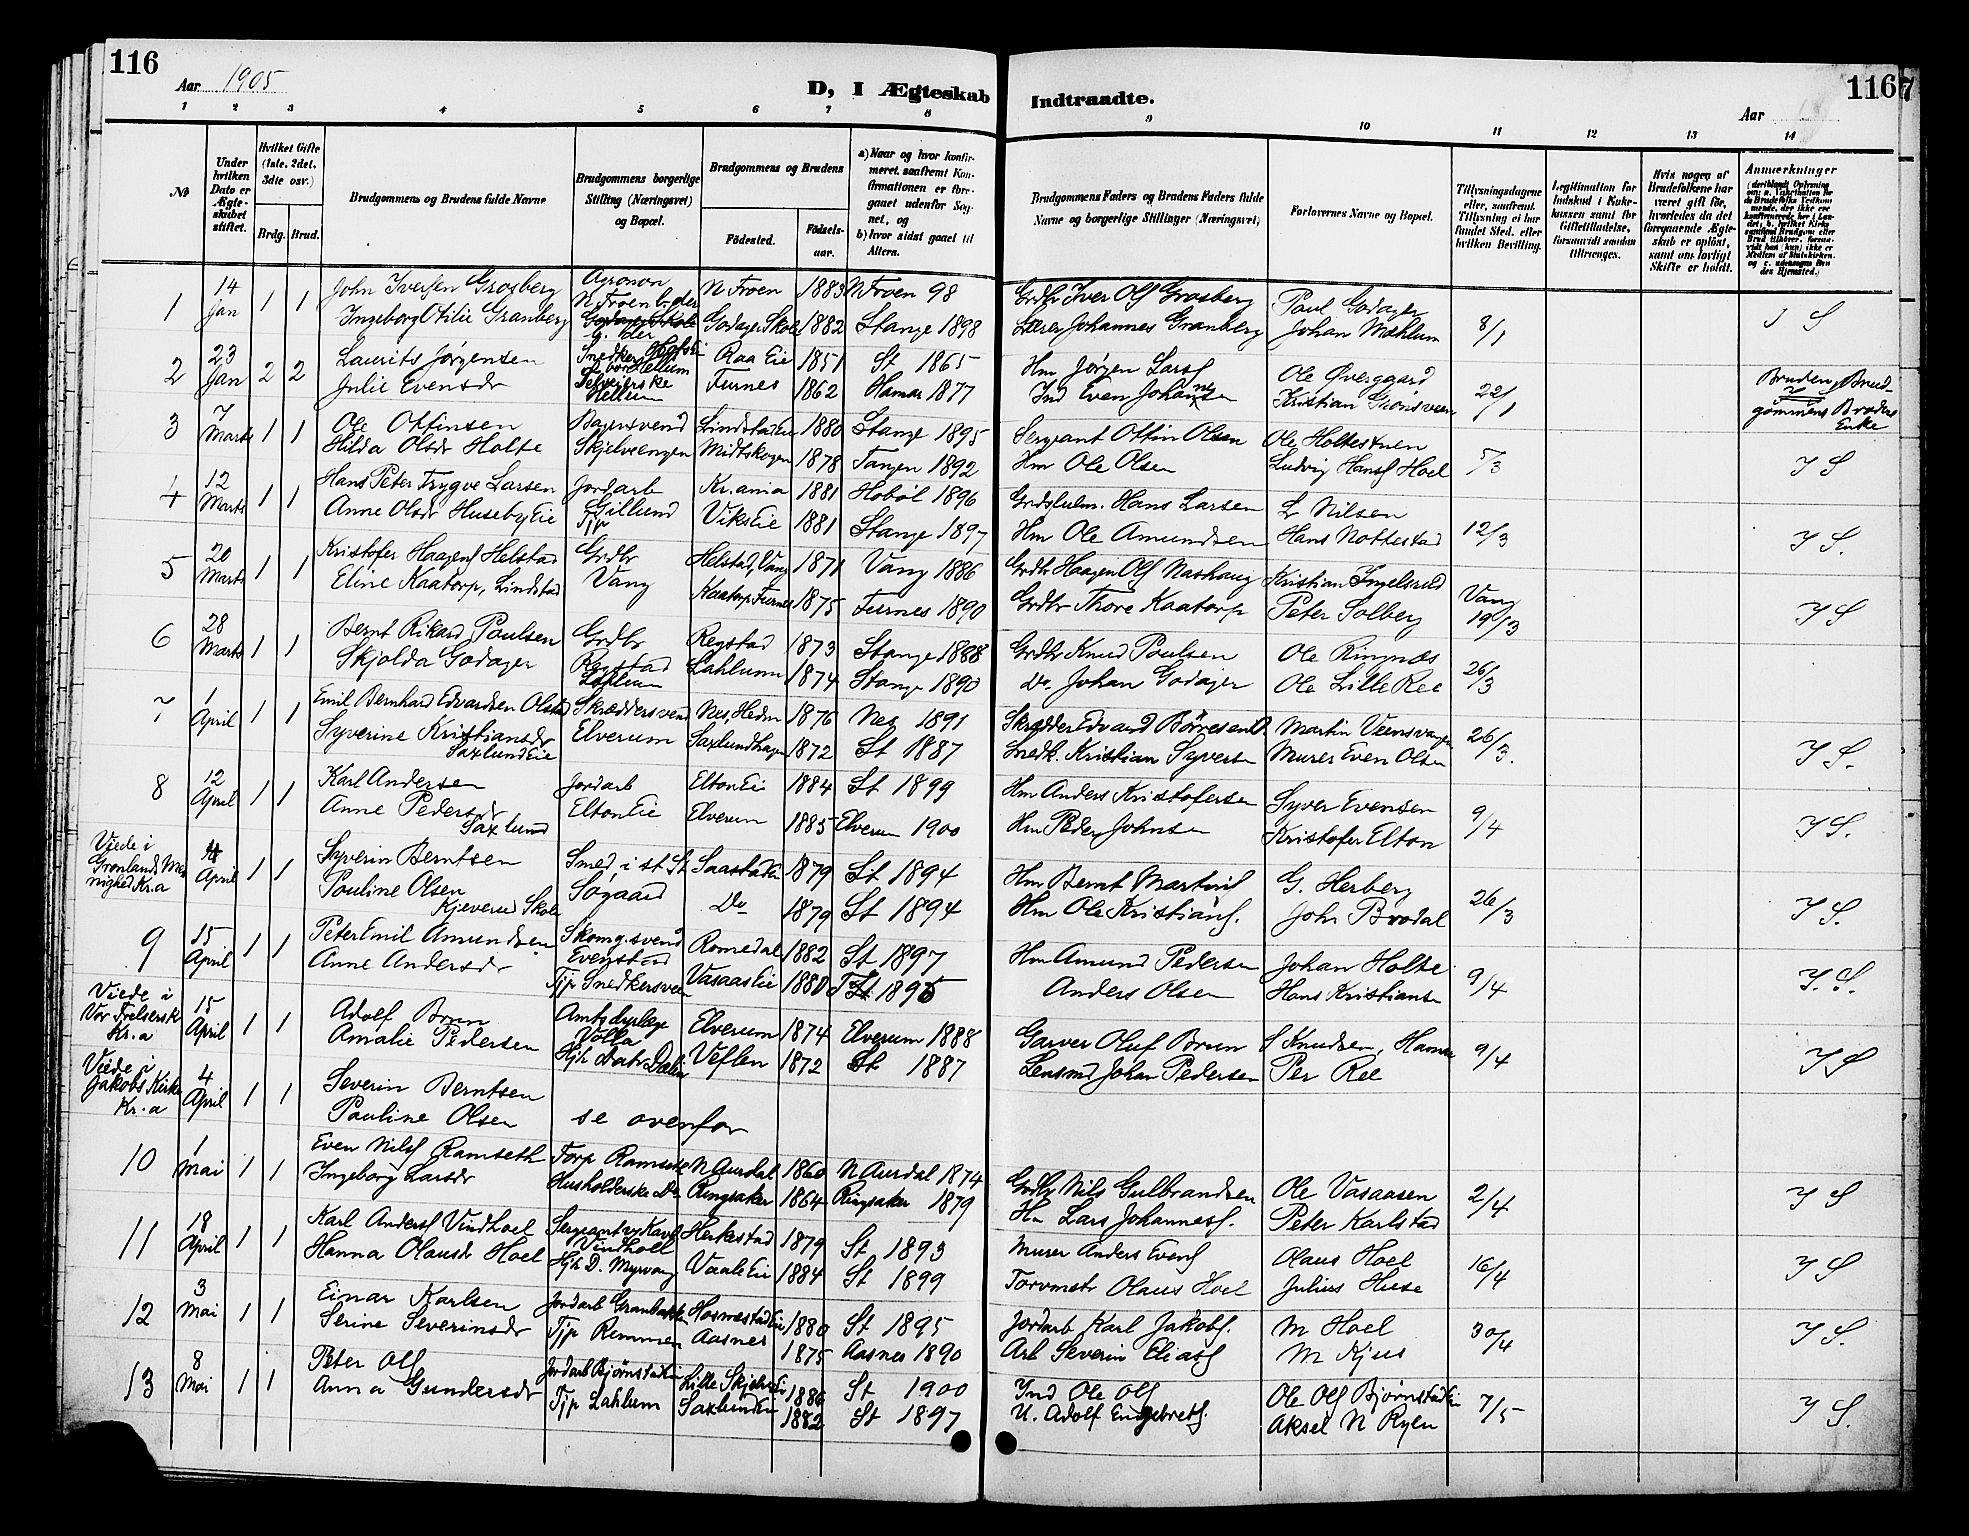 116
Aar 1905
D, I Ægteskab
Indtraadte.
Aar
1167
1 2 3 4 5 6 7 8 9 10 11 12 13 14
No
Under hvilken Dato er Ægteskabet stiftet.
Hvilket Gifte (1ste, 2det, 3die osv.)
Brdg. Brud.
Brudgommens og Brudens fulde Navne
Brudgommens borgerlige Stilling (Næringsvei) og Bopæl.
Brudgommens og Brudens
Födested.
Födselsaar.
a) Naar og hvor konfirmeret, saafremt Konfirmationen er foregaaet udenfor Sognet, og
b) hvor sidst gaaet til Alters.
Brudgommens Faders og Brudens Faders fulde Navne og borgerlige Stillinger (Næringsvei)
Forlovernes Navne og Bopæl.
Tillysningsdagene eller, saafremt Tillysning ei har fundet Sted, efter hvilken Bevilling.
Legitimation for Indskud i Enkekassen samt for Giftetilladelse, forsaavidt saadan tiltrænges.
Hvis nogen af Brudefolkene har været gift för, hvorledes da det foregaaende Ægteskab er oplöst, samt om lovligt Skifte er holdt.
Anmærkninger
1 14 Jan 1 1 John Iversen Grosberg Agronom N Froen 1883 N Froen 98 Grdbr Iver Ols Grosberg Paul Godager 8/1 I S
Ingeborg Otilie Granberg Godager Skole 1882 Stange 1898 Lærer Johannes Granberg Johan Mæhlum
2 23 Jan 2 2 Laurits Jørgensen Snedker Raa Eie 1851 St 1865 Hm Jørgen Larss Ole Øvergaard 22/1 Bruden Brudgommens Broders Enke
Julie Evensdr Hellum Furnes 1862 Hamar 1877 Ind Even Johansen Kristian Grønsveen
3 7 Marts 1 1 Ole Ottinsen Bagersvend Lindstad Eie 1880 Stange 1895 Sergeant Ottin Olsen Ole Holtestuen 5/3 I S
Hilda Olsdr Holte Skjelveengen Midtskogen 1878 Tangen 1892 Hm Ole Olsen Ludvig Hanss Hoel
4 12 Marts 1 1 Hans Peter Trygve Larsen Jordarb Kr.ania 1881 Hobøl 1896 Hans Larsen L Nilsen 12/3 I S.
Anne Olsdr Huseby Eie Gillund Tjp Viks Eie 1881 Stange 1897 Hm Ole Amundsen Hans Nottestad
5 20 Marts 1 1 Kristofer Haagens Helstad Grdbr Helstad, Vang 1871 Vang 1886 Grdbr Haagen Ols Nashaug Kristian Ingelsrud Vang 19/3 I S
Eline Kaatorp, Lindstad Vang Kaatorp Furnes 1875 Furnes 1890 Grdbr Thore Kaatorp Peter Solberg
6 28 Marts 1 1 Bernt Rikard Paulsen Grdbr Rogstad 1873 Stange 1888 Grdbr Knud Paulsen Ole Ringnæs 26/3
Skjolda Godager Rogstad Lahlum Lahlum 1874 Stange 1890 Do Johan Godager Ole Lille Ree
7 1 April 1 1 Emil Bernhard Edvardsen Olstad Skræddersvend Nes, Hedm 1876 Nes 1891 Skrædder Edvard Børresen Martin Veensvangen 26/3. I S.
Syverine Kristiansdr Saxlund Eie Elverum Saxlundhagen 1872 St 1887 Snedk. Kristian Syversen Murer Even Olsen
8 12 April 1 1 Karl Andersen Jordarb Elton Ei 1884 St 1899 Hm Anders Kristofersen Syver Evensen 9/4 I S.
Anne Pedersdr Saxlund Elton Eie Elverum 1885 Elverum 1900 Hm Peder Johnsen Kristofer Elton
Viede i Grønlands Menighed Kr.a 4 April 1 1 Syverin Berntsen Smed, i st. St Saastad Ei 1879 St 1894 Hm Bernt Martins G. Herberg 26/3 I S.
Pauline Olsen Kjeverud Skole Søgaard Do 1879 St 1894 Hm Ole Kristians. John Brodal
9 15 April 1 1 Peter Emil Amundsen Skomg.svend Romedal 1882 St 1897 Hm Amund Pedersen Johan Holte 9/4 I. S.
Anne Andersdr Evenstad Tjp Snedkersveen Vasaas Eie 1880 1895 Anders Olsen Hans Kristiansen
Viede i Vor Frelsers K Kr.a 15 April 1 1 Adolf Brun Amtsdyrlæge Elverum 1874 Elverum 1888 Garver Oluf Brun S Knudsen, Hamar 9/4 I S
Amalie Pedersen Volla Hjh Datr Dælin Vefsen 1872 St 1887 Lensmd Johan Pedersen Per Ree
Viede i Jakobs Kirke Kr.a 4 April 1 1 Severin Berntsen
Pauline Olsen se ovenfor
10 1 Mai 1 1 Even Nils Ramseth Torp Ramseth N Aurdal 1860 N Aurdal 1874 Grdbr Nils Gulbrandsen Ole Vasaasen 2/4 I S
Ingeborg Larsdr Husholderske Do Ringsaker 1864 Ringsaker 1879 Hm Lars Johanness. Peter Karlstad
11 18 April 1 1 Karl Anders Vindhoel Sergeant v Kav Herkestad 1879 St 1893 Murer Anders Evens Olaus Hoel 16/4 I S
Hanna Olausdr Hoel Vindhoel Hjh D. Myrvang Vaale Eie 1884 St 1899 Torvmstr Olaus Hoel Julius Huse
12 3 Mai 1 1 Einar Karlsen Jordarb Granbakken Hosmestad Eie 1880 St 1895 Jordarb Karl Jakobs. M Hoel 30/4 I S.
Serine Severinsdr Tjp Remmen Aasnes 1875 Aasnes 1890 Arb Severin Elias M Kjus
13 8 Mai 1 1 Peter Ols Jordarb Bjørnstad Ei Lille Skjelve Ei 1886 St 1900 Ind Ole Ols Ole Ols Bjørnstad Ei 7/5 I S.
Anna Gundersdr Tjp Lahlum Saxlund Ei 1882 St 1897 U. Adolf Engebrets. Aksel N Rylen